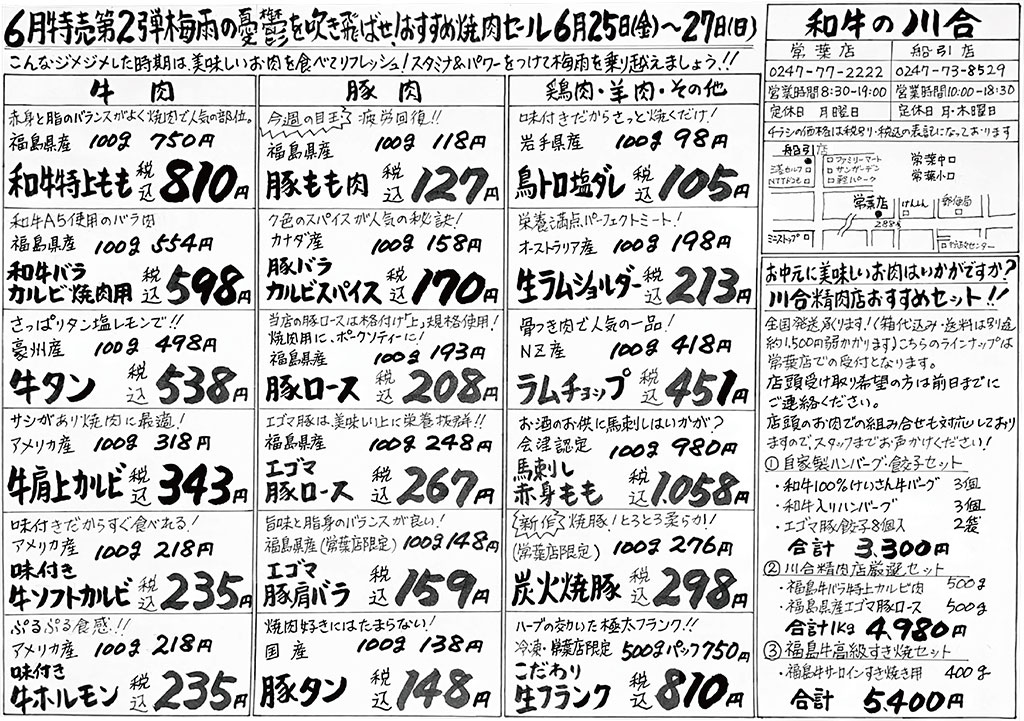 6月特売第2弾梅雨の憂鬱を吹き飛ばせ!おすすめ焼肉セール6月25日(金)～27日(日)
こんなジメジメした時期は、美味しいお肉を食べてリフレッシュ!スタミナ&パワーをつけて梅雨を乗り越えましょう!!
牛肉
赤身と脂のバランスがよく焼肉で人気の部位。
福島県産 100g 750円
和牛特上もも 税込 810円
和牛A5使用のバラ肉
福島県産 100g 554円
和牛バラ
カルビ焼肉用 税込 598円
さっぱりタン塩レモンで!!
豪州産 100g 498円
牛タン 税込 538円
サシがあり焼肉に最適!
アメリカ産 100g 318円
牛肩上カルビ 税込 343円
味付きだからすぐ食べれる!
アメリカ産 100g 218円
味付き
牛ソフトカルビ 税込 235円
ぷるぷる食感!!
アメリカ産 100g 218円
味付き
牛ホルモン 税込 235円
豚肉
今週の目玉 疲労回復!!
福島県産 100g 118円
豚もも肉 税込 127円
7色のスパイスが人気の秘訣!
カナダ産 100g 158円
豚バラ
カルビスパイス 税込 170円
当店の豚ロースは格付け「上」規格使用!
焼肉用に、ポークソティーに!
福島県産 100g 193円
豚ロース 税込 208円
エゴマ豚は、美味しい上に栄養抜群!!
福島県産 100g 248円
エゴマ
豚ロース 税込 267円
旨味と脂身のバランスが良い!
福島県産(常葉店限定) 100g 148円
エゴマ
豚肩バラ 税込 159円
焼肉好きにはたまらない!
国産 100g 138円
豚タン 税込 148円
鶏肉・羊肉・その他
味付きだからさっと焼くだけ!
岩手県産 100g 98円
鳥トロ塩ダレ 税込 105円
栄養満点パーフェクトミート!
オーストラリア産 100g 198円
生ラムショルダー 税込 213円
骨つき肉で人気の一品!
NZ産 100g 418円
ラムチョップ 税込 451円
お酒のお供に馬刺しはいかが?
会津認定 100g 980円
馬刺し
赤身もも 税込 1.058円
新作 焼豚!とろとろ柔らか!
(常葉店限定) 100g 276円
炭火焼豚 税込 298円
ハーブの効いた極太フランク!!
冷凍・常葉店限定 500gパック750円
こだわり
生フランク 税込 810円
和牛の川合
常葉店 船引店
0247-77-2222 0247-73-8529
営業時間8:30-19:00 営業時間10:00-18:30
定休日 月曜日 定休日 月・木曜日
チラシの価格は税別り・税込の表記になっております
船引店
ファミリーマート
サンガーデン
NTTドコモ
常葉中
常葉小
常葉店
げんしん
郵便局
288
ミニストップ
お中元に美味しいお肉はいかがですか?
川合精肉店おすすめセット!!
全国発送承ります!(箱代込み・送料は別途
約1,500円弱かかります)こちらのラインナップは
常葉店での受付となります。
店頭受け取り希望の方は前日までに
ご連絡ください。
店頭のお肉での組み合せも対応しており
ますので、スタッフまでお声かけください!
①自家製ハンバーグ・餃子セット
・和牛100%けいさん牛バーグ 3個
・和牛入りハンバーグ 3個
・エゴマ豚餃子8個入 2袋
合計 3.300円
②川合精肉店厳選セット
・福島牛バラ特上カルビ肉 500g
・福島県産エゴマ豚ロース 500g
合計1kg 4.980円
③福島牛高級すき焼セット
・福島牛サーロインすき焼き用 400g
合計 5.400円